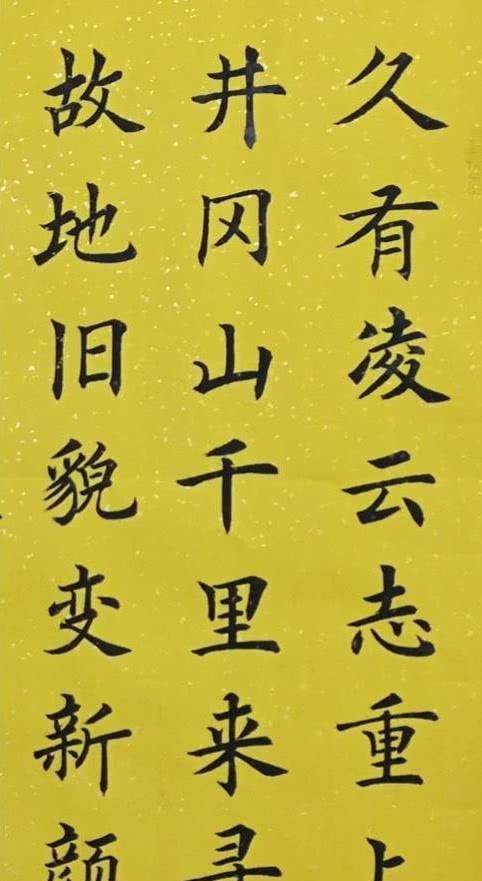 久有凌云志重上
井冈山千里来寻
故地旧貌变新颜